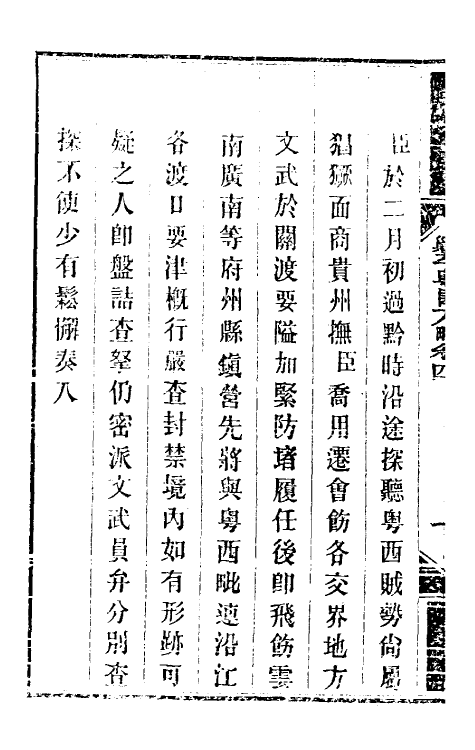 臣於二月初過黔時沿途探聽粤西賊勢尙屬
猖獗面商貴州撫臣喬用遷會飭各交界地方
文武於關渡要隘加緊防堵履任後卽飛飭雲
南廣南等府州縣鎭營先將與粤西毗連沿江
各渡口要津槪行嚴查封禁境內如有形跡可
疑之人卽盤詰查拏仍密派文武員弁分別查
探不使少有鬆懈奏入